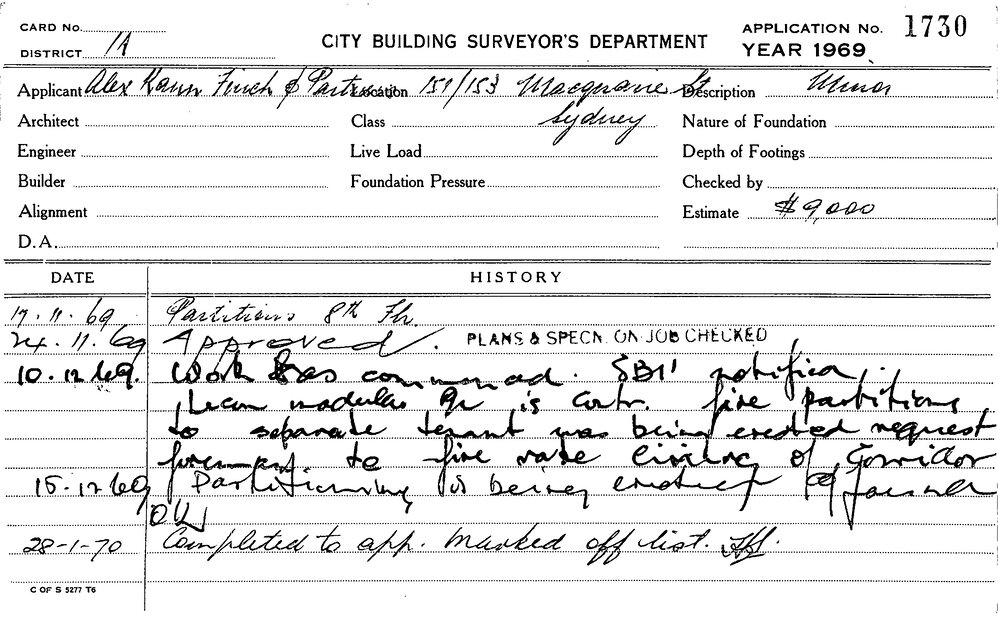 CARD No.
DISTRICT 1A
CITY BUILDING SURVEYOR'S DEPARTMENT
APPLICATION No. 1730
YEAR 1969
Applicant Alex Kann Finch & Partners Location 151/153 Macquarie St Description Minor
Architect Class Sydney Nature of Foundation
Engineer Live Load Depth of Footings
Builder Foundation Pressure Checked by
Alignment Estimate $9,000
D.A.
DATE HISTORY
17.11.69 Partitions 8th Flr.
24.11.69 Approved. PLANS & SPECN. ON JOB CHECKED
10.12.69. Work has commenced. SBI
modular is contr. fire partitions
to separate tenant was being erected request
to fire rate of Corridor
15.12.69 Partitioning is being erected
28-1-70 Completed to app. Marked off list.
C OF S 5277 T6